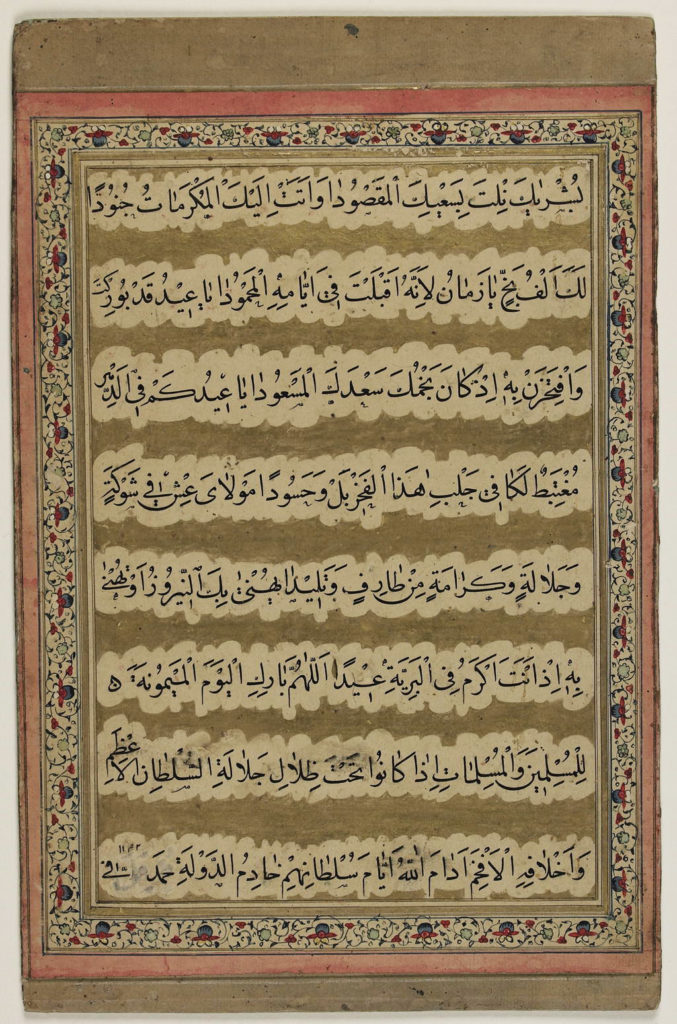 بُشْرٰيكَ نِلتَ بِسَعْيِكَ الْمَقصُودٰا وَاَتَتْ اِلَيْكَ الْمَكْرَمَاتُ جُنُودًا
لَكَ اَلْفُ بَخٍّ يٰا زَمٰانُ لِاَنَّهُ اَقبَلْتَ فِي اَيّٰامِهِ الْمَحْمُودٰا يٰا عِيْدُ قَدْ بُورِكْتَ
وَافْتَخِرَنْ بِهِ اِذْ كٰانَ نَجْمُكَ سَعْدَكَ الْمَسْعُودٰا يٰا عِيدُ كَمْ فِي الدَّهْرِ
مُغْتَبِطٌ لَكٰا فِي جَلْبِ هٰذَا الْفَخْرِ بَلْ وَحَسُودًا مَوْلٰايَ عِشْ فِي شَوْكَةٍ
وَجَلٰالَةٍ وَكَرٰامَةٍ مِنْ طٰارِفٍ وَتَلِيْدٰا يُهْنىٰ بِكَ النَّيْرُوزُ اَوْ تُهْنىٰ
بِهِ اِذْ اَنْتَ اَكْرَمُ فِى الْبَرِيَّةِ عِيْدًا اَللّٰهُمَّ بٰارِكِ الْيَوْمَ الْمَيْمُونَةَ
لِلْمُسْلِمِيْنَ وَالْمُسْلِمٰاتِ اِذٰا كٰانُوا تَحْتَ ظِلٰالِ جَلٰالَةِ السُّلْطٰانِ الْاَعْظَمِ
وَاَخْلٰافِهِ الْاَفْخَمِ اَدٰامَ اللّٰهُ اَيّٰامَ سُلْطٰانِهِمْ خٰادِمُ الدَّوْلَةِ